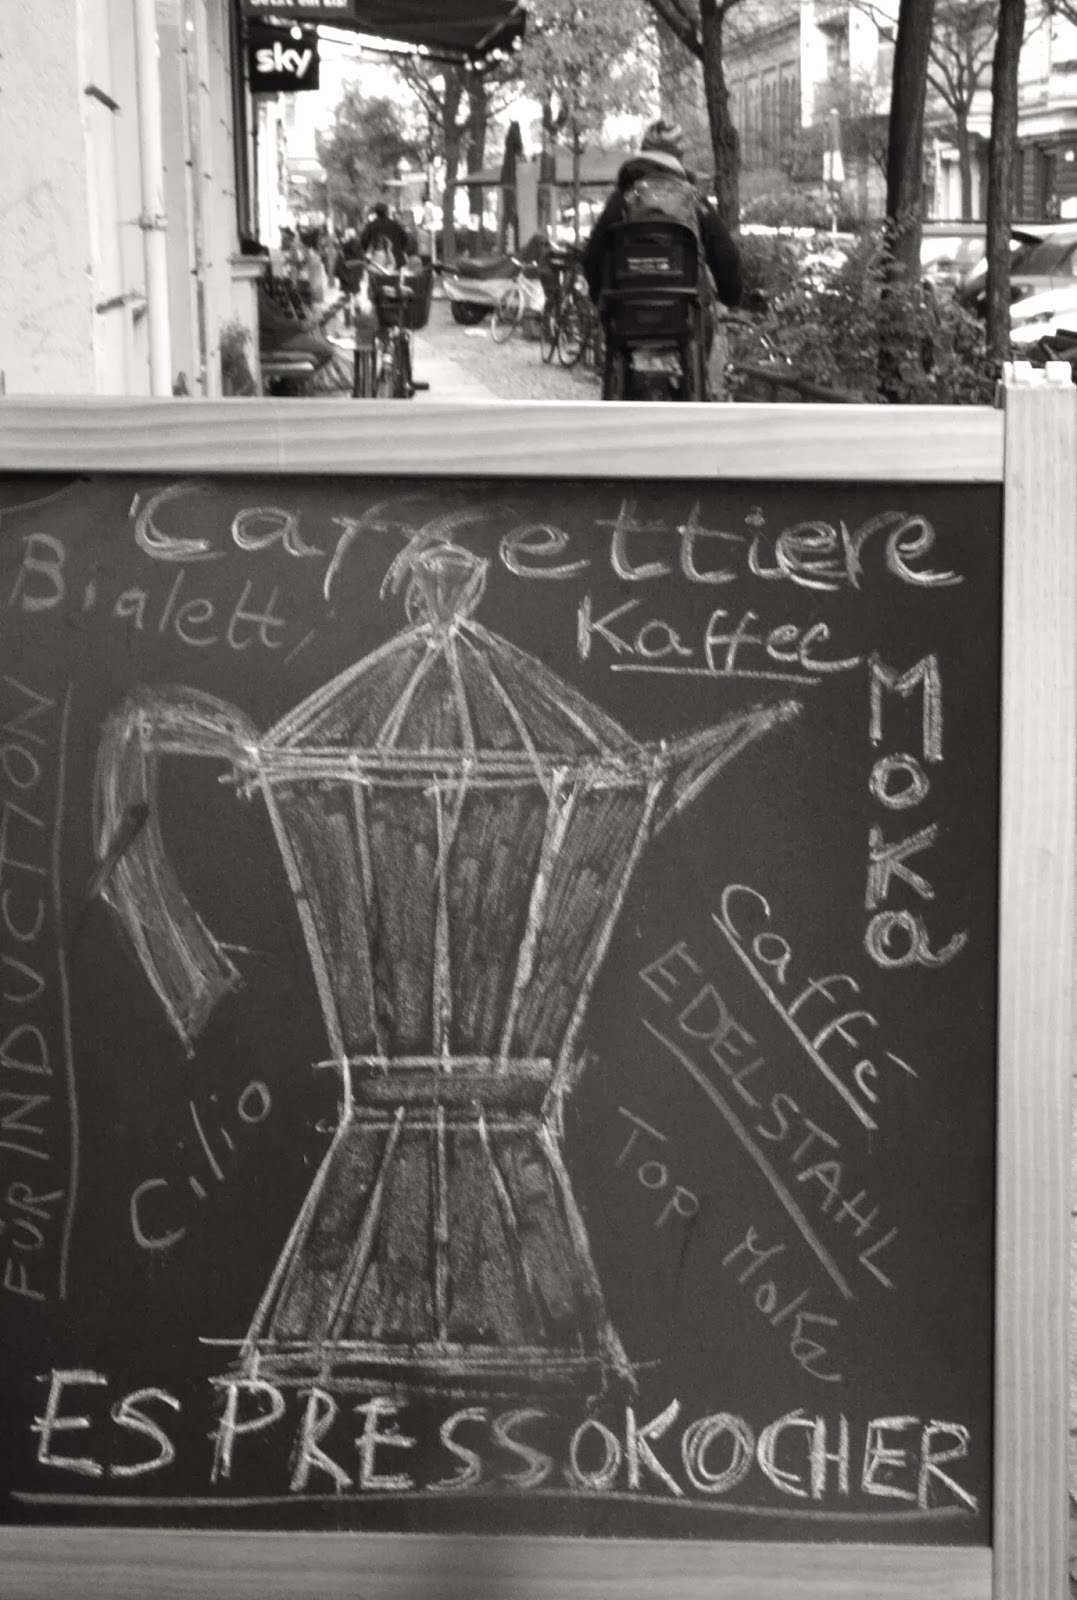 Jetzt ein Eis!
sky
Caffettiere
Bialetti
Kaffee
Moka
FÜR INDUCTION
Caffé
EDELSTAHL
Cilio
Top Moka
ESPRESSOKOCHER